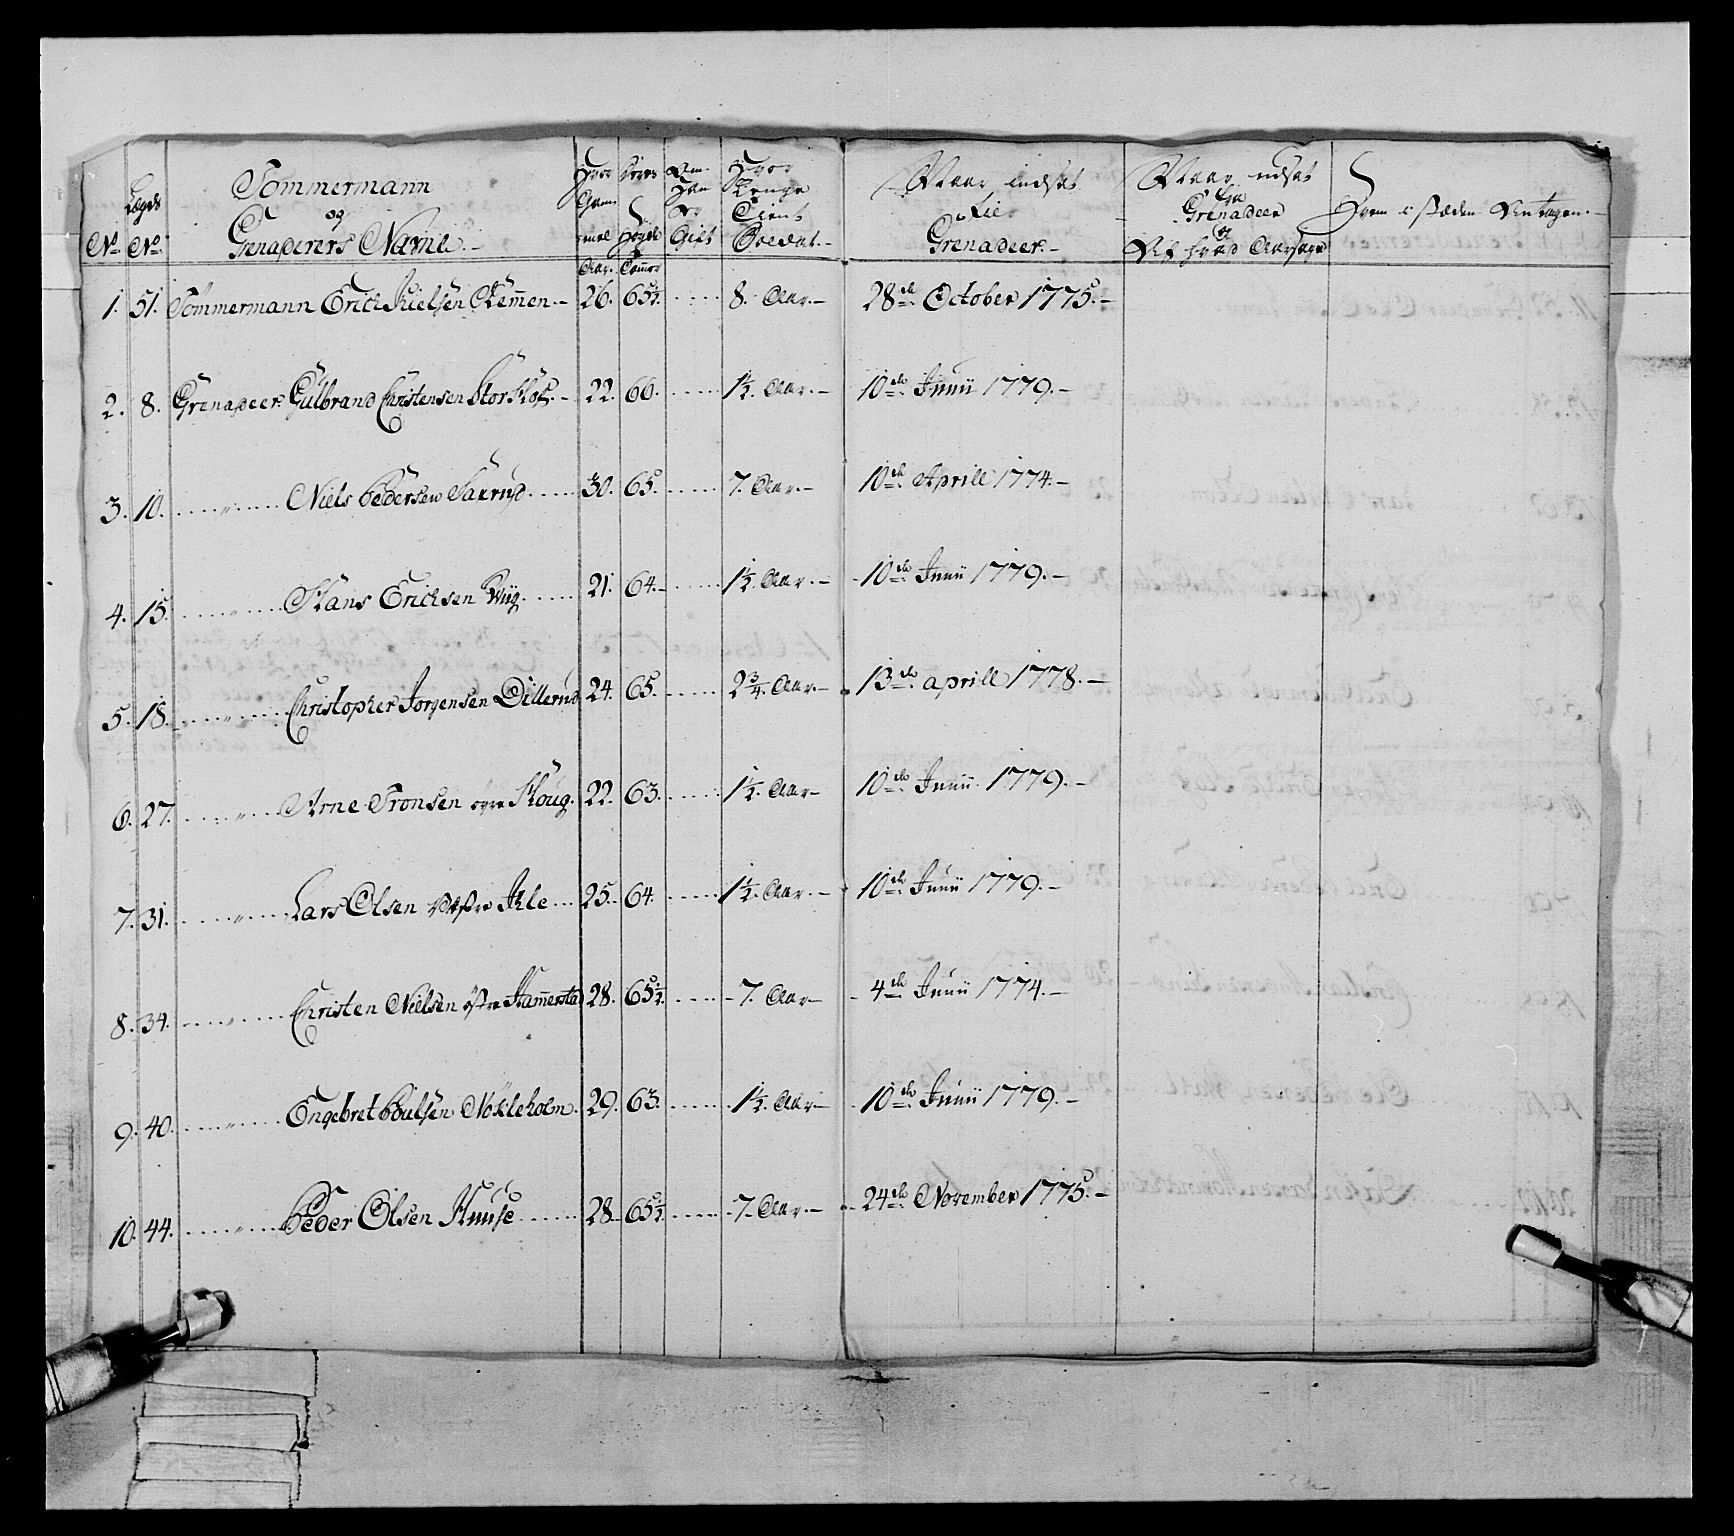 No
Lægds No
Tømmermann
og
Grenaderers Navne.
Hvor Gam̄el Aar.
Deres Høyde Tom̄er
Om Han Er Gift
Hvor Lenge Tient Soldat.
Naar indsat
til
Grenadeer.
Naar udsat
fra
Grenadeer
og
Af hvad Aarsage
Hvem i stæden Antagen.
1. 51. Tømmermann Erich Nielsen Klemmen 26. 65½. 8. Aar. 28de October 1775.
2. 8. Grenadeer Gulbrand Christensen Storskot. 22. 60. 1½. Aar. 10de Junii 1779.
3. 10. Niels Pedersen Saxrud 30. 65. 7. Aar. 10de Aprill 1774.
4. 15. Hans Erichsen Wiig. 21. 64. 1½. Aar. 10de Junii 1779.
5. 18. Christopher Jorgensen Dillerud 24. 65. 2¾. Aar 13de aprill 1778.
6. 27. Arne Tronsen øvre Skoug. 22. 63. 1½. Aar 10de Junii 1779.
7. 31. Lars Olsen Østre Ihle 25. 64. 1½. Aar. 10de Junii 1779.
8. 34. Christen Nielsen østre Ham̄ersta 28. 65½. 7. Aar 4de Junii 1774.
9. 40. Engebret Poulsen Nøkleholm. 29. 63. 1½. Aar 10de Junii 1779.
10. 44. Peder Olsen Huuse 28. 65½. 7. Aar. 24de November 1775.